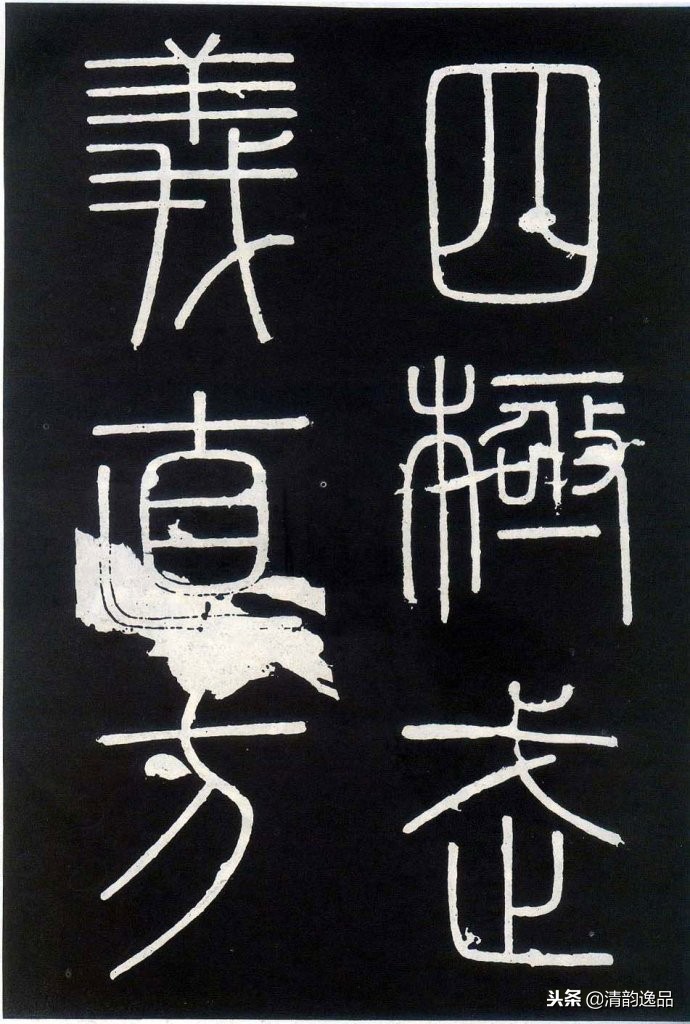 四極武
義直方
头条 @清韵逸品